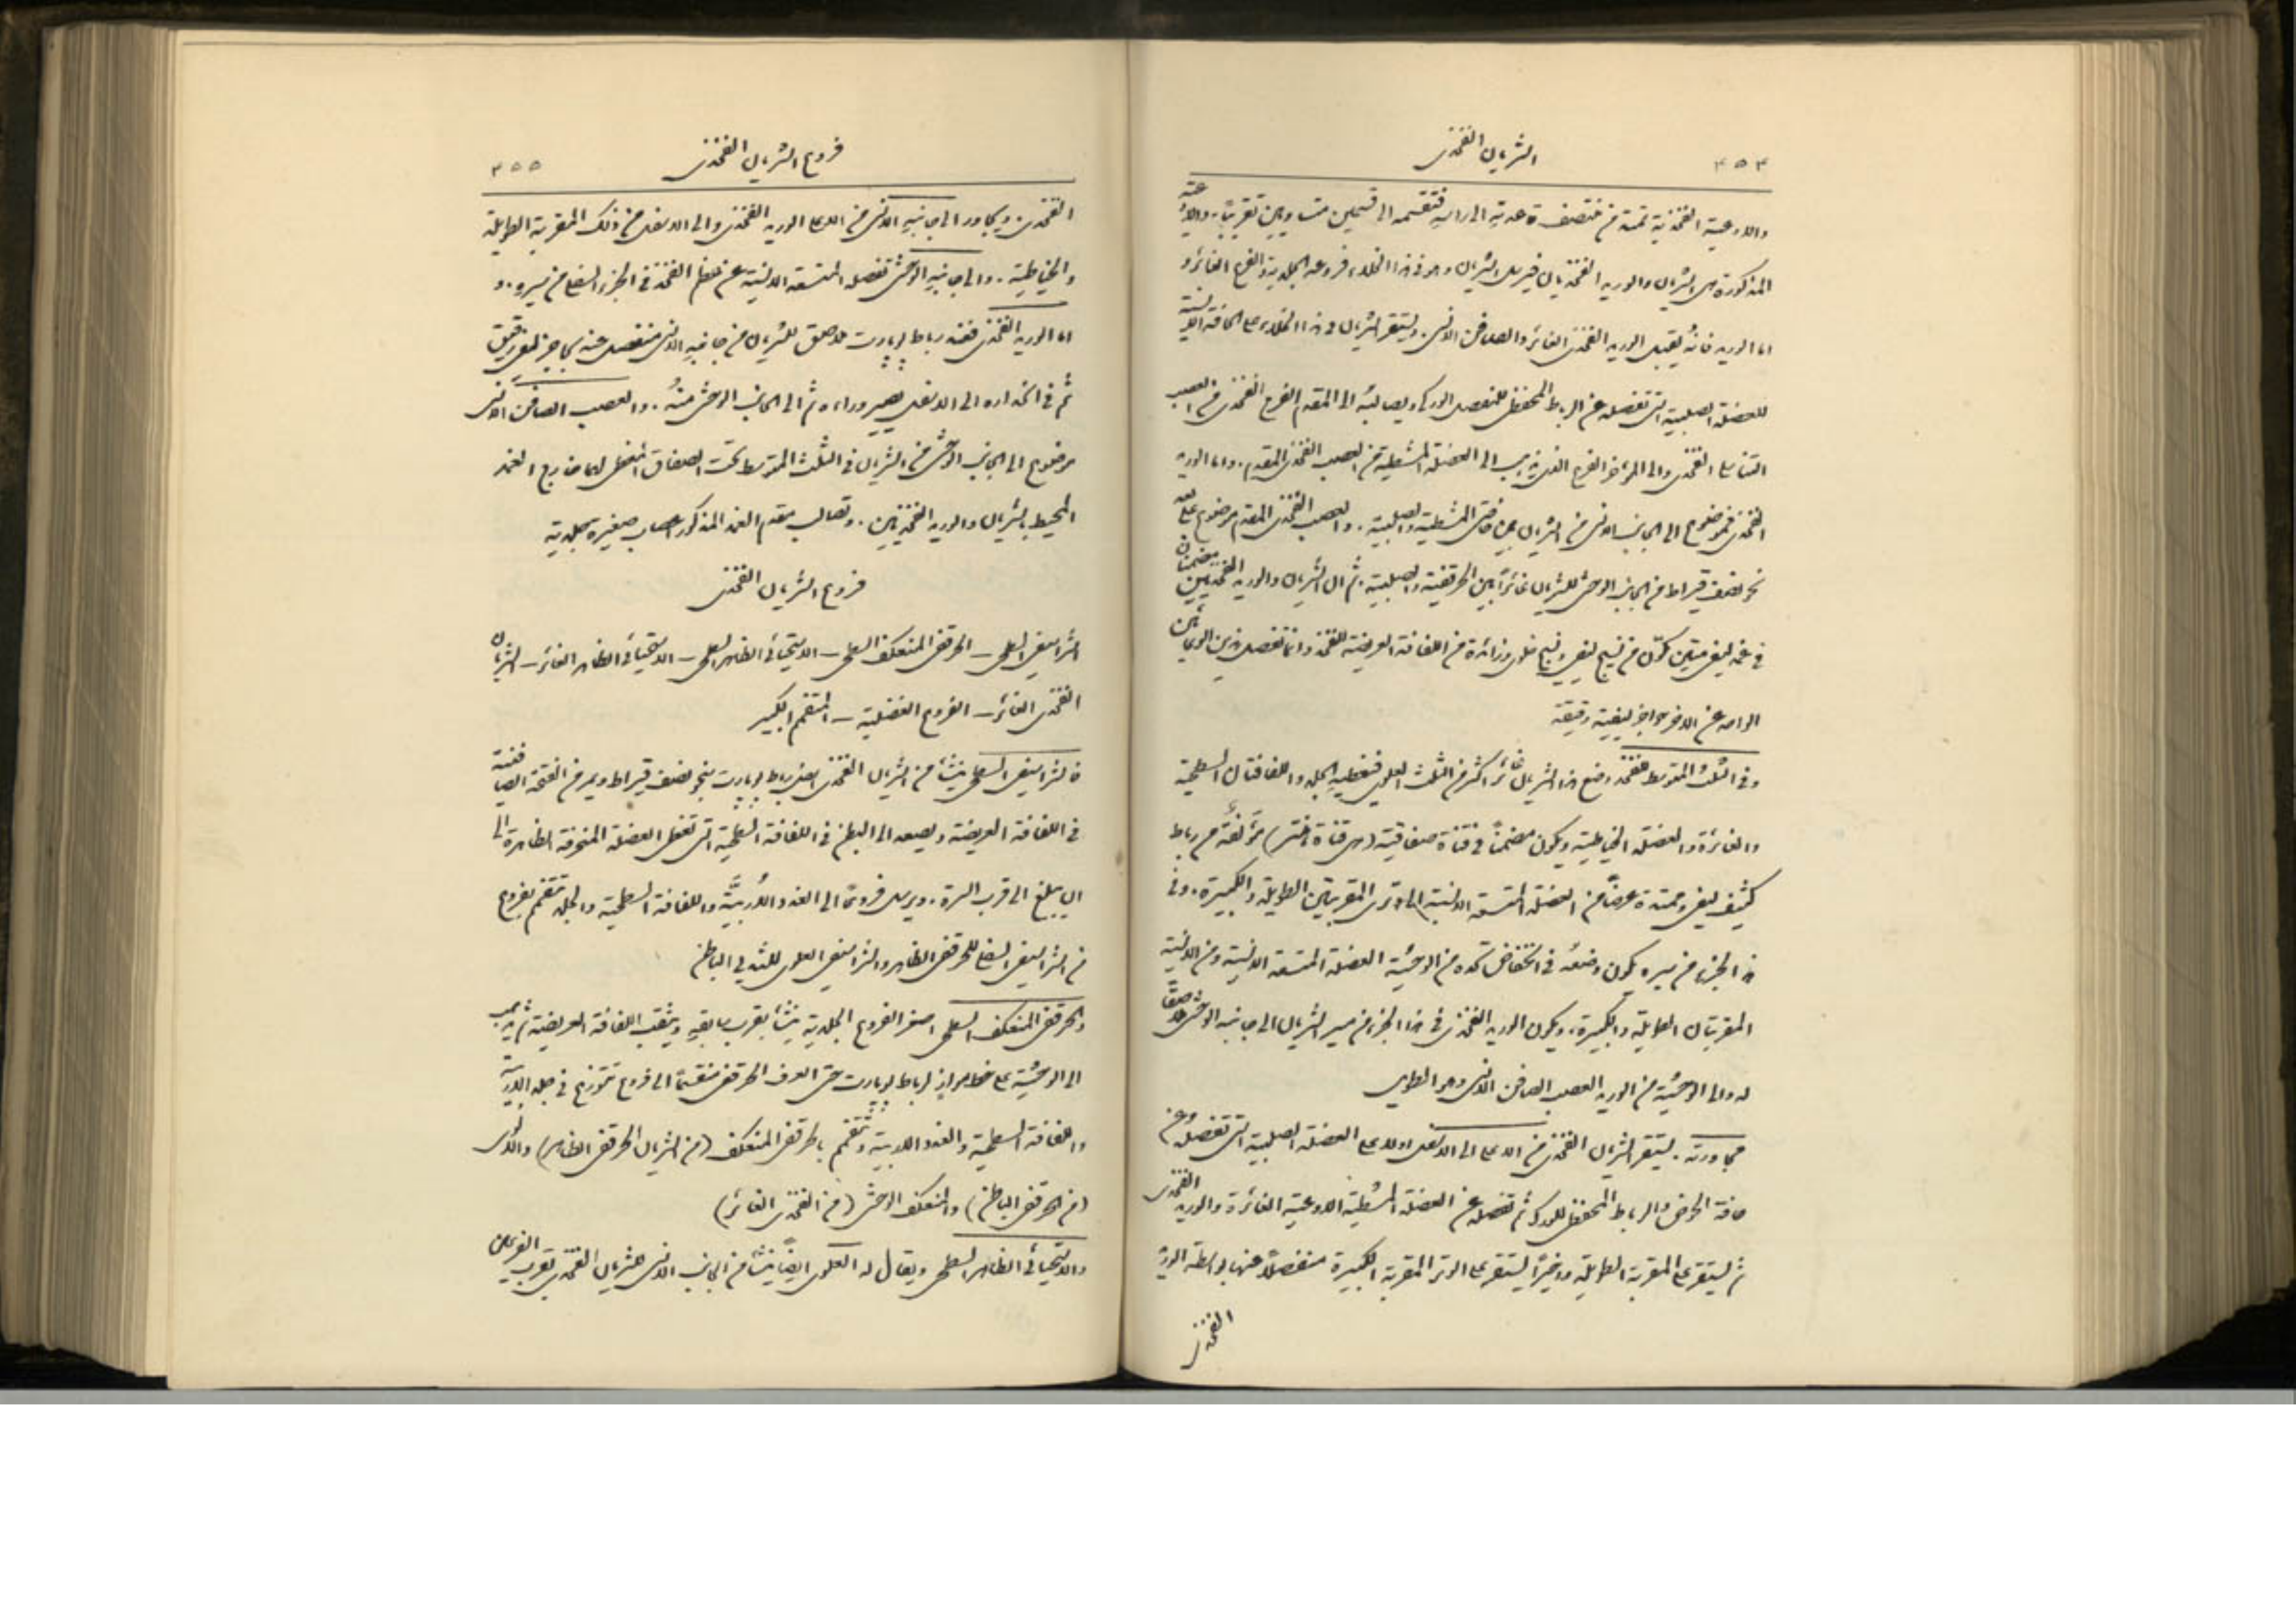 ٣٥٤
الشريان الفخذي
والاوعية الفخذية تمتد من منتصف قاعدته الى راسه فتقسمه الى قسمين متساويين تقريبًا. والاوعية
المذكورة هي الشريان والوريد الفخذيان فيرسل الشريان وهو في هذا الخلاء فروعه الجلدية والفرع الغائر و
اما الوريد فانه يقبل الوريد الفخذي الغائر والصافن الانسي. ويستقر الشريان في هذا الخلاء على الحافة الانسية
للعضلة الصلبية التي تفصله عن الرباط المحفظي للمفصل الوركي ويصاحبه الى المقدم الفرع الفخذي من العصب
التناسلي الفخذي والى المؤخر الفرع الذي يذهب الى العضلة المشطية من العصب الفخذي المقدم. واما الوريد
الفخذي فموضوع الى الجانب الانسي من الشريان بين حافتي المشطية والصلبية. والعصب الفخذي المقدم موضوع على بعد
نحو نصف قيراط من الجانب الوحشي للشريان غائرًا بين الحرقفية والصلبية. ثم ان الشريان والوريد الفخذيين مضمنان
في غمد ليفي متين مكوّن من نسيج ليفي ونسيج خلوي وزائدة من اللفافة العريضة للفخذ وانما تفصل هذين الوعائين
الواحد عن الاخر حواجز ليفية دقيقة
وفي الثلث المتوسط للفخذ وضع هذا الشريان غائر اكثر من الثلث العلوي فيغطيه الجلد واللفافتان السطحية
والغائرة والعضلة الخياطية ويكون مضمنًا في قناة صفاقية (هي قناة هنتر) مؤلفة من رباط
كثيف ليفي ممتدة عرضًا من العضلة المتسعة الانسية الى وتري المقربتين الطويلة والكبيرة. وفي
هذا الجزء من سيره يكون وضعه في انخفاض تحده من الوحشية العضلة المتسعة الانسية ومن الانسية
المقربتان الطويلة والكبيرة. ويكون الوريد الفخذي في هذا الجزء من سير الشريان الى جانبه الوحشي ملاصقًا
له والى الوحشية من الوريد العصب الصافن الانسي وهو الطويل
مجاورته. يستقر الشريان الفخذي من الاعلى الى الاسفل اولا على العضلة الصلبية التي تفصله عن
حافة الحوض والرباط المحفظي للورك ثم تفصله عن العضلة المشطية الاوعية الغائرة والوريد الفخذي
ثم يستقر على المقربة الطويلة واخيرًا يستقر على الوتر المقربة الكبيرة منفصلاً عنها بواسطة الوريد
الفخذي
٣٥٥
فروع الشريان الفخذي
الفخذي ويجاور الى جانبه الانسي من الاعلى الوريد الفخذي والى الاسفل من ذلك المقربة الطويلة
والخياطية. والى جانبه الوحشي تفصله المتسعة الانسية عن عظم الفخذ في الجزء السفلي من سيره. و
اما الوريد الفخذي فعند رباط بوبارت ملاصق للشريان من جانبه الانسي منفصل عنه بحاجز ليفي رقيق
ثم في انحداره الى الاسفل يصير وراءه ثم الى الجانب الوحشي منه. والعصب الصافن الانسي
موضوع الى الجانب الوحشي من الشريان في الثلث المتوسط تحت الصفاق المغطي لهما خارج الغمد
المحيط بالشريان والوريد الفخذيين. وتصالب مقدم الغمد المذكور اعصاب صغيرة جلدية
فروع الشريان الفخذي
الشراسيفي السطحي — الحرقفي المنعكف السطحي — الاستحيائي الظاهر السطحي — الاستحيائي الظاهر الغائر — الشريان
الفخذي الغائر — الفروع العضلية — المتفمم الكبير
فالشراسيفي السطحي ينشأ من الشريان الفخذي اسفل رباط بوبارت بنحو نصف قيراط ويمر من الفتحة الصافنية
في اللفافة العريضة ويصعد الى البطن في اللفافة السطحية التي تغطي العضلة المنحرفة الظاهرة الى
ان يبلغ الى قرب السرة. ويرسل فروعًا الى الغدد الاُربيَّة واللفافة السطحية والجلد تتفمم بفروع
من الشراسيفي السفلي للحرقفي الظاهر والشراسيفي العلوي للثديي الباطن
والحرقفي المنعكف السطحي اصغر الفروع الجلدية ينشأ بقرب سابقه ويثقب اللفافة العريضة ثم يذهب
الى الوحشية على خط مواز لرباط بوبارت حتى العرف الحرقفي منقسمًا الى فروع تتوزع في جلد الاربية
واللفافة السطحية والغدد الاربية وتتفمم بالحرقفي المنعكف (من الشريان الحرقفي الظاهر) والألوي
(من الحرقفي الباطن) والمنعكف الوحشي (من الفخذي الغائر)
والاستحيائي الظاهر السطحي ويقال له العلوي ايضًا ينشأ من الجانب الانسي للشريان الفخذي بقرب الفرعين